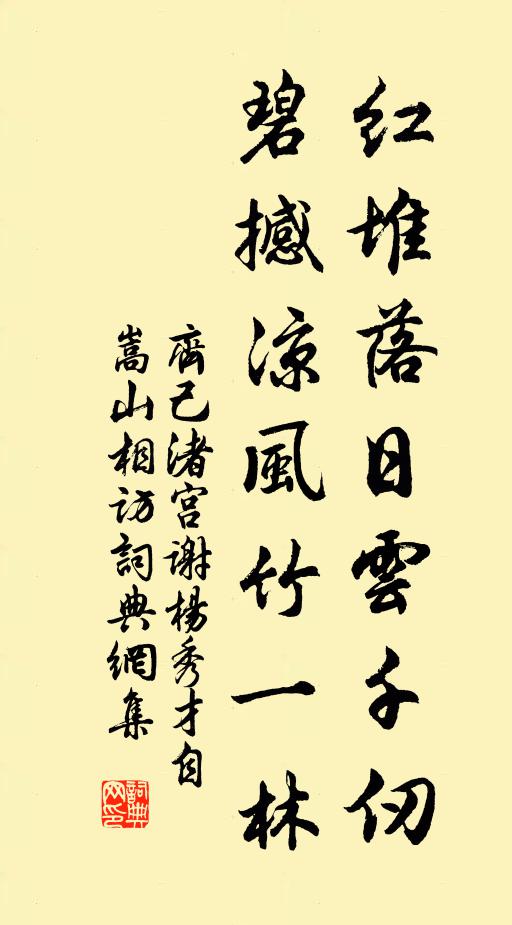 红堆落日雲千仞
碧撼涼風竹一林
齊己渚宮谢楊秀才自
嵩山相访詞典網集
詞典
网印